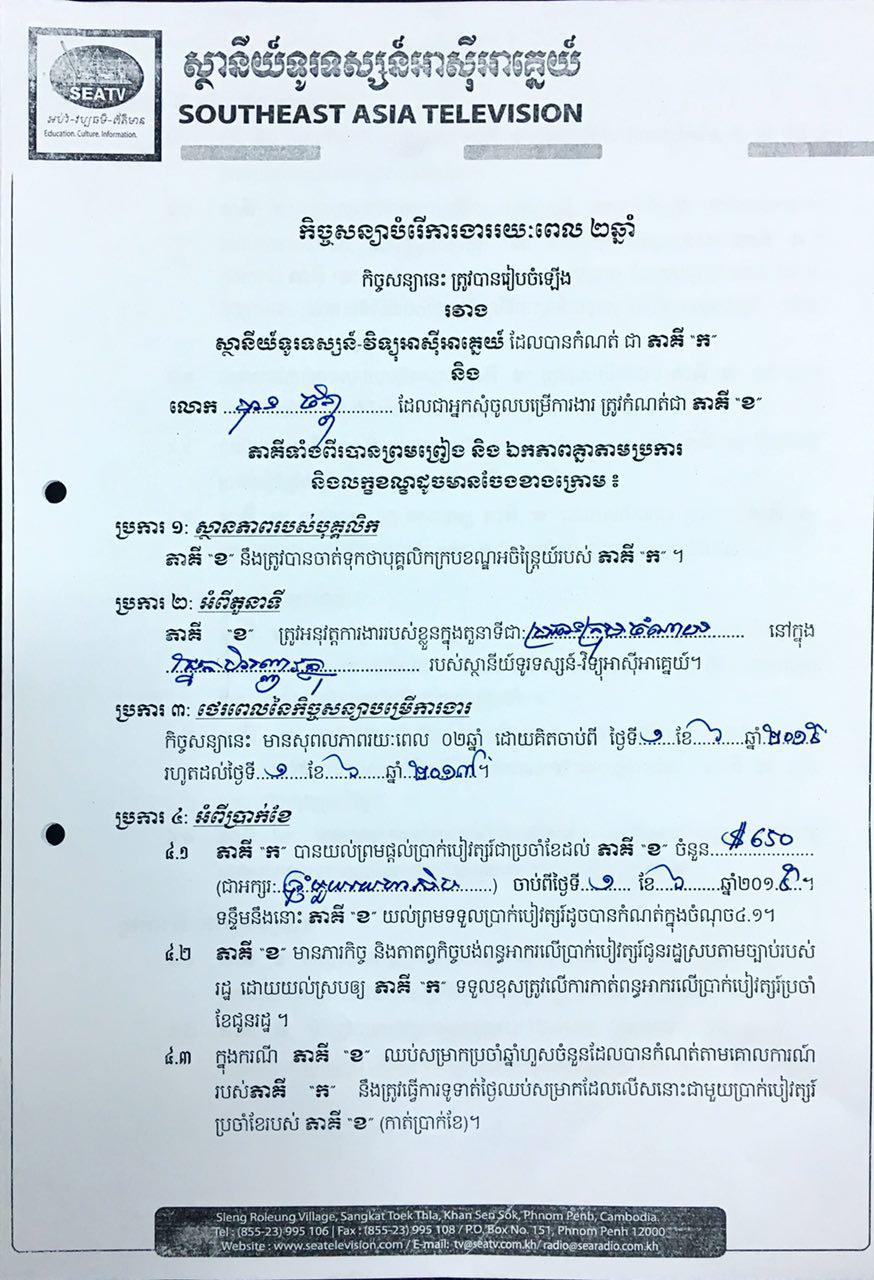 SEATV
អប់រំ-វប្បធម៌-ព័ត៌មាន
Education. Culture. Information.
ស្ថានីយ៍ទូរទស្សន៍អាស៊ីអាគ្នេយ៍
SOUTHEAST ASIA TELEVISION
កិច្ចសន្យាបំរើការងាររយៈពេល ២ឆ្នាំ
កិច្ចសន្យានេះ ត្រូវបានរៀបចំឡើង
រវាង
ស្ថានីយ៍ទូរទស្សន៍-វិទ្យុអាស៊ីអាគ្នេយ៍ ដែលបានកំណត់ ជា ភាគី "ក"
និង
លោក ........ ដែលជាអ្នកសុំចូលបម្រើការងារ ត្រូវកំណត់ជា ភាគី "ខ"
ភាគីទាំងពីរបានព្រមព្រៀង និង ឯកភាពគ្នាតាមប្រការ
និងលក្ខខណ្ឌដូចមានចែងខាងក្រោម ៖
ប្រការ ១: ស្ថានភាពរបស់បុគ្គលិក
ភាគី "ខ" នឹងត្រូវបានចាត់ទុកថាបុគ្គលិកក្របខណ្ឌអចិន្ត្រៃយ៍របស់ ភាគី "ក" ។
ប្រការ ២: អំពីតួនាទី
ភាគី "ខ" ត្រូវអនុវត្តការងាររបស់ខ្លួនក្នុងតួនាទីជា: ប្រធានក្រុមចំណាយ នៅក្នុង
ផ្នែកហិរញ្ញវត្ថុ របស់ស្ថានីយ៍ទូរទស្សន៍-វិទ្យុអាស៊ីអាគ្នេយ៍។
ប្រការ ៣: ថេរពេលនៃកិច្ចសន្យាបម្រើការងារ
កិច្ចសន្យានេះ មានសុពលភាពរយៈពេល ០២ឆ្នាំ ដោយគិតចាប់ពី ថ្ងៃទី..១...ខែ...៦....ឆ្នាំ.២០១៥
រហូតដល់ថ្ងៃទី...១....ខែ...៦.....ឆ្នាំ..២០១៧។
ប្រការ ៤: អំពីប្រាក់ខែ
៤.១ ភាគី "ក" បានយល់ព្រមផ្តល់ប្រាក់បៀវត្សរ៍ជាប្រចាំខែដល់ ភាគី "ខ" ចំនួន...$650
(ជាអក្សរ:..ប្រាំមួយរយហាសិប......) ចាប់ពីថ្ងៃទី...១.... ខែ..៦......ឆ្នាំ២០១.៥.។
ទន្ទឹមនឹងនោះ ភាគី "ខ" យល់ព្រមទទួលប្រាក់បៀវត្សរ៍ដូចបានកំណត់ក្នុងចំណុច៤.១។
៤.២ ភាគី "ខ" មានភារកិច្ច និងតាតព្វកិច្ចបង់ពន្ធអាករលើប្រាក់បៀវត្សរ៍ជូនរដ្ឋស្របតាមច្បាប់របស់
រដ្ឋ ដោយយល់ស្របឲ្យ ភាគី "ក" ទទួលខុសត្រូវលើការកាត់ពន្ធអាករលើប្រាក់បៀវត្សរ៍ប្រចាំ
ខែជូនរដ្ឋ ។
៤.៣ ក្នុងករណី ភាគី "ខ" ឈប់សម្រាកប្រចាំឆ្នាំហួសចំនួនដែលបានកំណត់តាមគោលការណ៍
របស់ភាគី "ក" នឹងត្រូវធ្វើការទូទាត់ថ្ងៃឈប់សម្រាកដែលលើសនោះជាមួយប្រាក់បៀវត្សរ៍
ប្រចាំខែរបស់ ភាគី "ខ" (កាត់ប្រាក់ខែ)។
Sleng Roleung Village, Sangkat Toek Thla, Khan Sen Sok, Phnom Penh, Cambodia.
Tel : (855-23) 995 106 | Fax : (855-23) 995 108 / P.O. Box No. 151, Phnom Penh 12000
Website : www.seatelevision.com / E-mail: tv@seatv.com.kh/ radio@searadio.com.kh